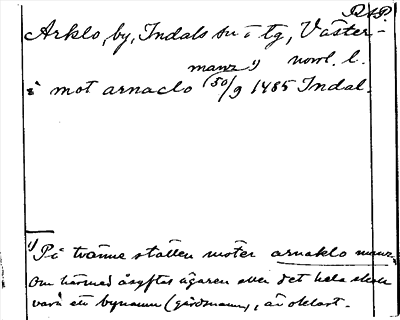 RAP.
Arklo, by, Indals sn o tg, Väster-
norrl. l.
manz 1)
i mot arnaclo 30/9 1485 Indal.
1) På tvänne ställen möter arnaklo manz.
Om härmed åsyftas ägaren eller det hela skall
vara ett bynamn (gårdsnamn), är oklart.